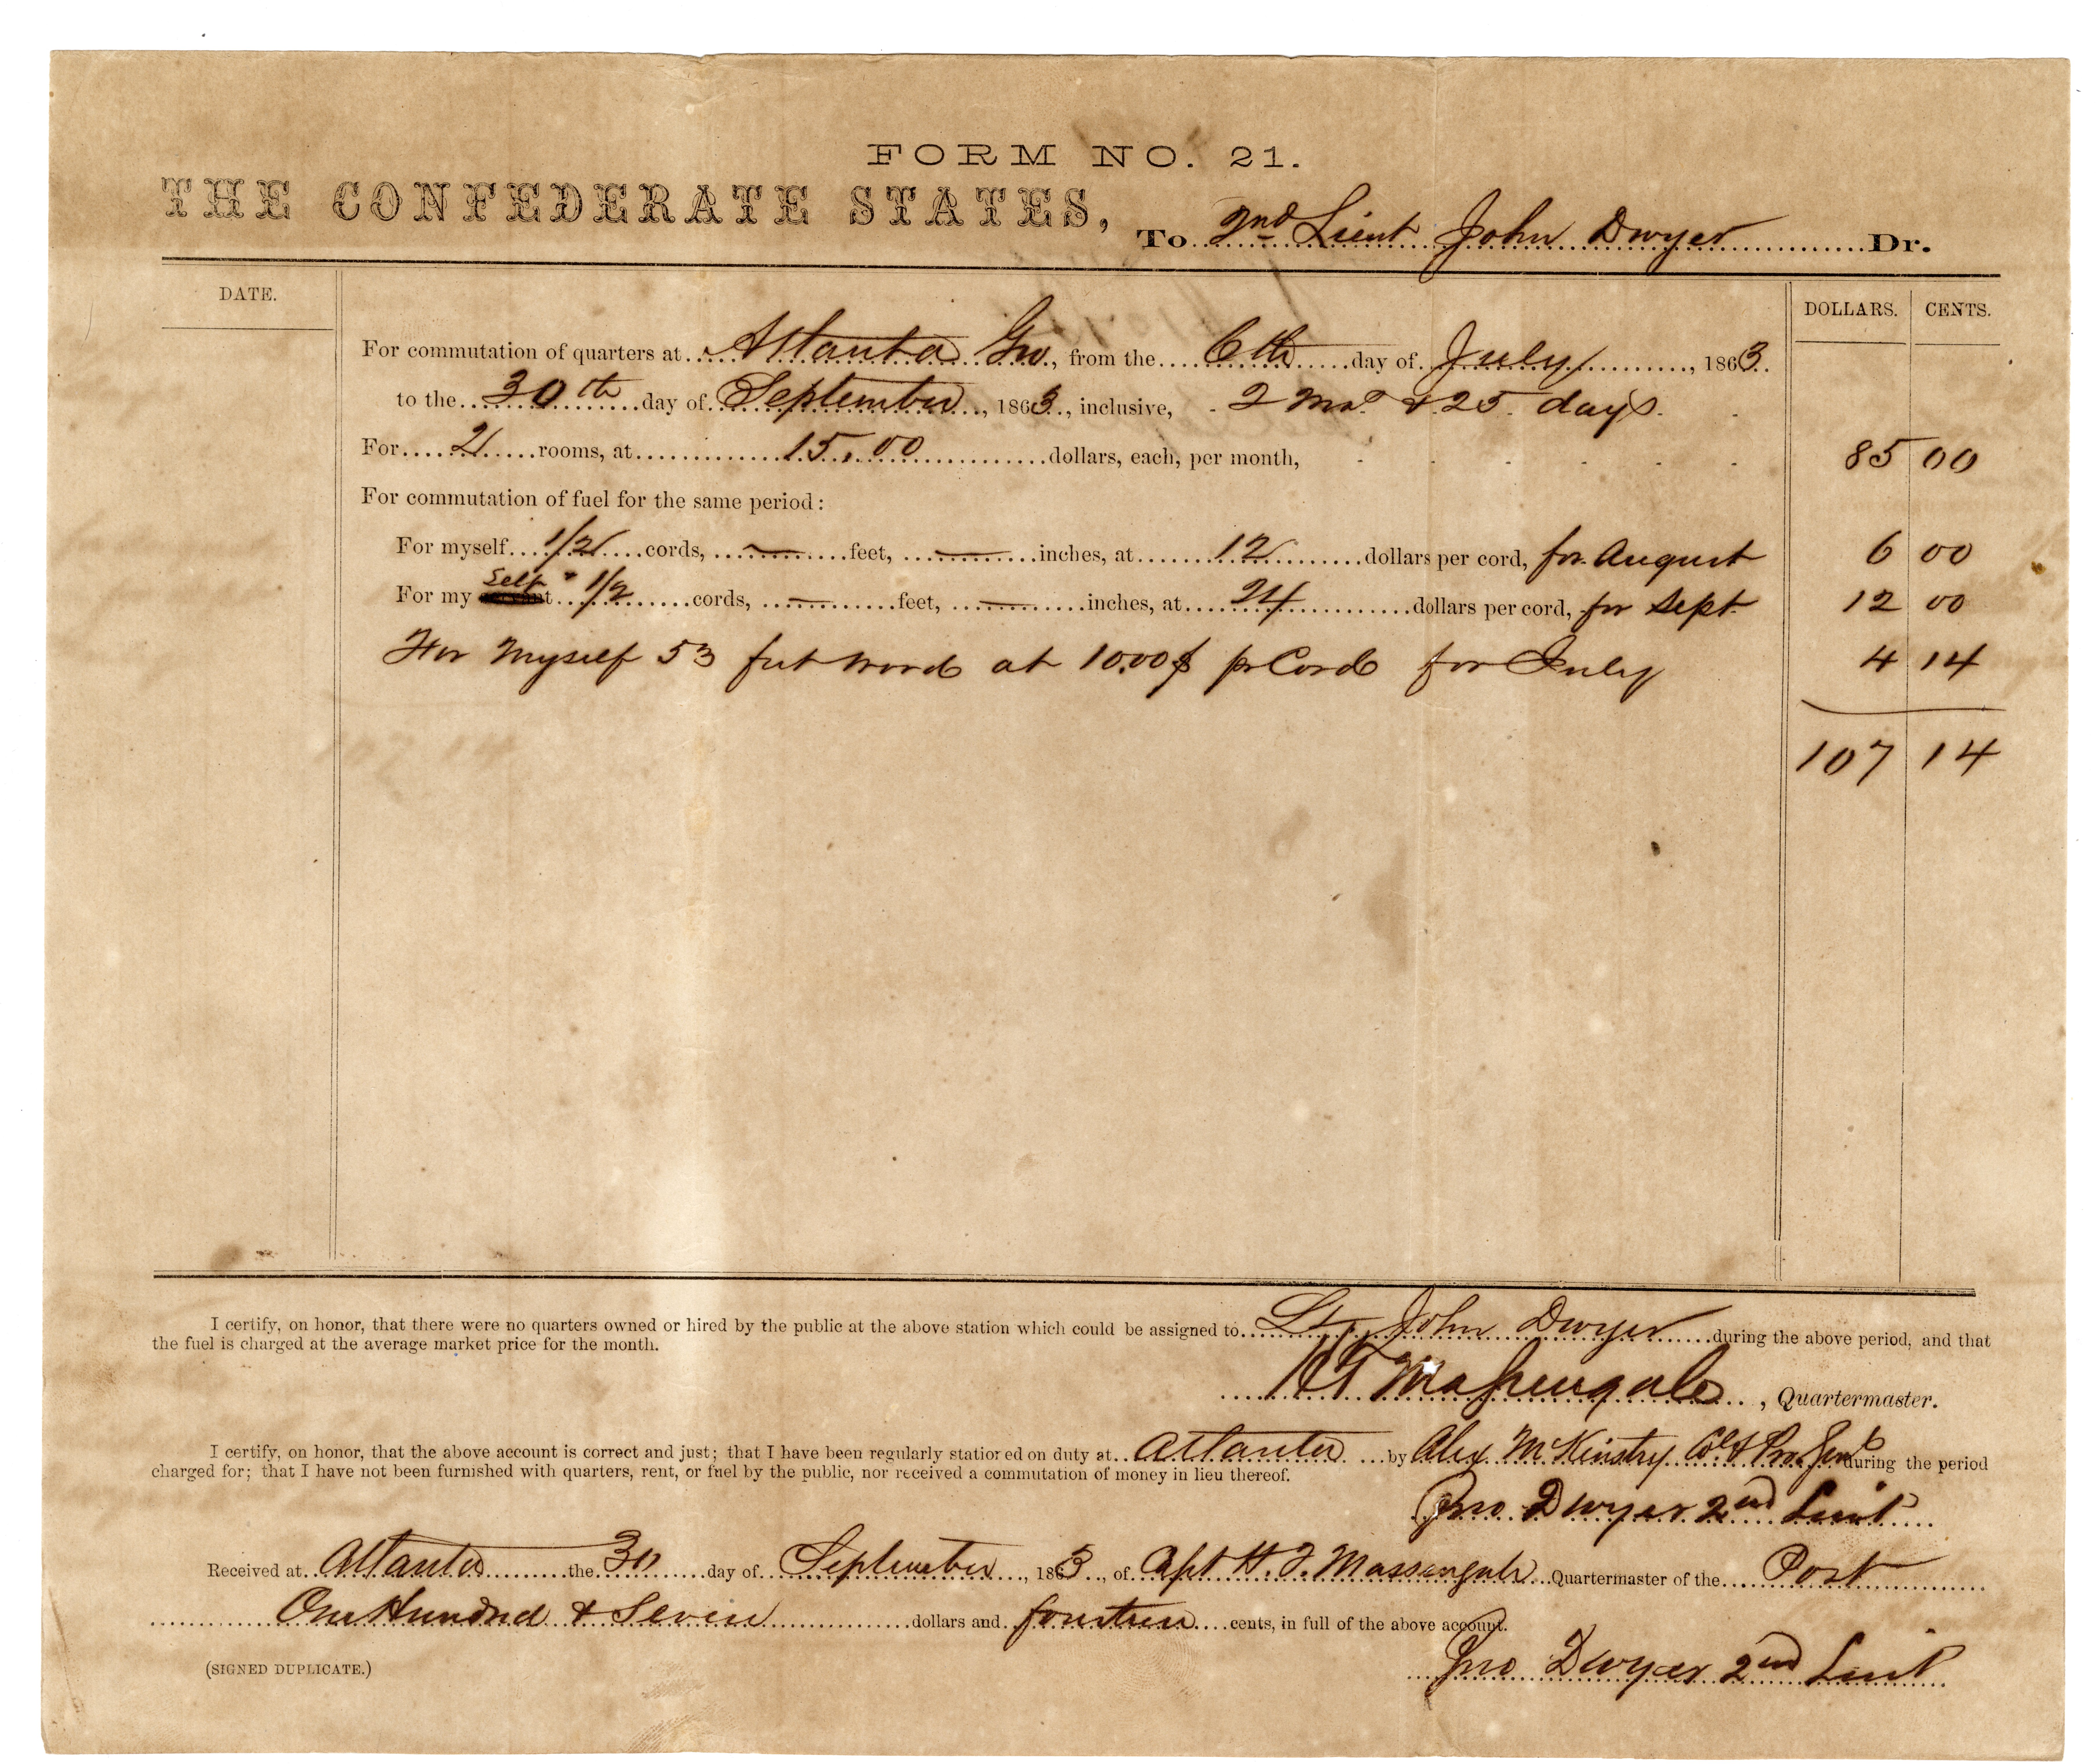 FORM NO. 21.
THE CONFEDERATE STATES, To 2nd Lieut John Dwyer Dr.
DATE. DOLLARS. CENTS.
For commutation of quarters at Atlanta Geo, from the 6th day of July, 1863.
to the 30th day of September, 1863, inclusive, 2 Mos & 25 days.
For 2 rooms, at 15.00 dollars, each, per month, 85 00
For commutation of fuel for the same period:
For myself 1/2 cords, — feet, — inches, at 12 dollars per cord, for August 6 00
For my Self 1/2 cords, — feet, — inches, at 24 dollars per cord, for Sept 12 00
For Myself 53 feet wood at 10.00$ pr Cord for July 4 14
107 14
I certify, on honor, that there were no quarters owned or hired by the public at the above station which could be assigned to Lt John Dwyer during the above period, and that
the fuel is charged at the average market price for the month.
H T Massengale, Quartermaster.
I certify, on honor, that the above account is correct and just; that I have been regularly stationed on duty at Atlanta by Alex McKinstry Col & Pro. Genl during the period
charged for; that I have not been furnished with quarters, rent, or fuel by the public, nor received a commutation of money in lieu thereof.
Jno Dwyer 2nd Lieut
Received at Atlanta the 30 day of September, 1863, of Capt H. T. Massengale Quartermaster of the Post
One Hundred & Seven dollars and fourteen cents, in full of the above account.
(SIGNED DUPLICATE.) Jno Dwyer 2nd Lieut